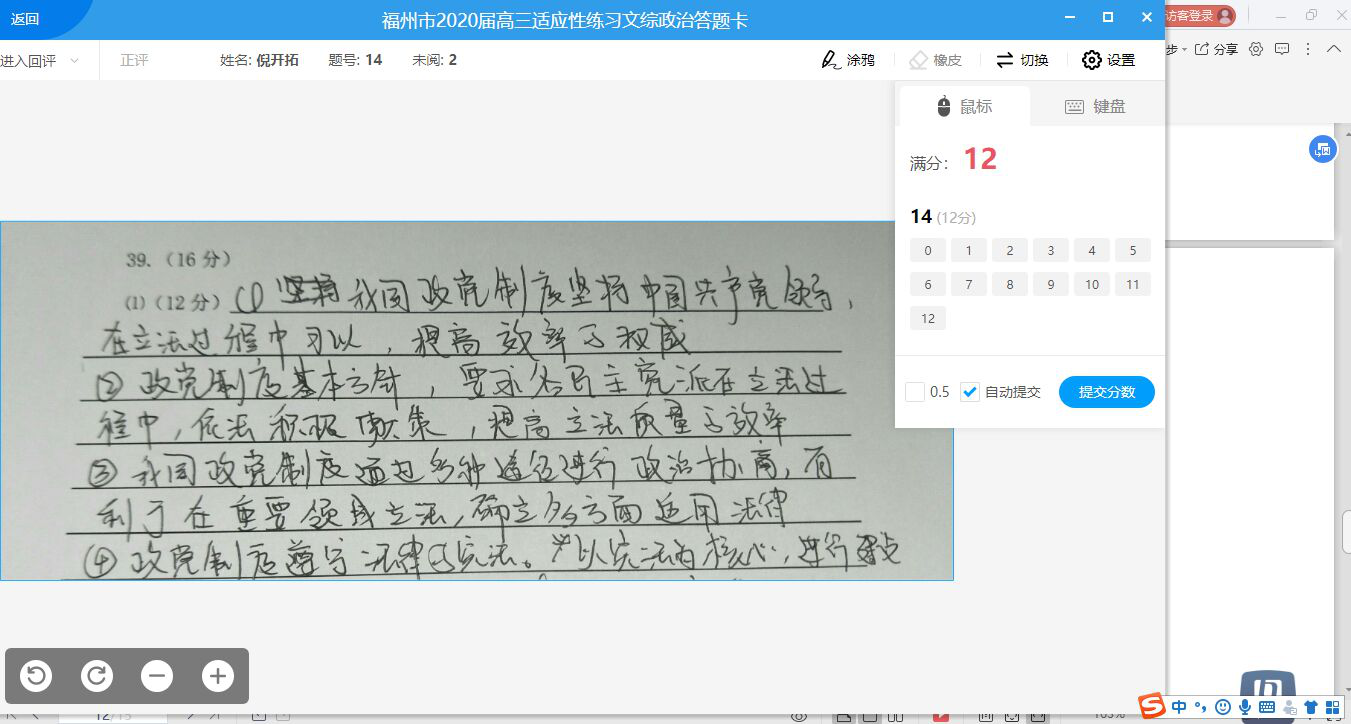 返回
福州市2020届高三适应性练习文综政治答题卡
访客登录
进入回评
正评
姓名: 倪开拓
题号: 14
未阅: 2
涂鸦
橡皮
切换
设置
步
分享
鼠标
键盘
满分: 12
14 (12分)
0 1 2 3 4 5
6 7 8 9 10 11
12
0.5
自动提交
提交分数
39. (16 分)
(1) (12 分) ① 坚持 我国政党制度坚持中国共产党领导,
在立法过程中可以, 提高效率与权威
② 政党制度基本方针, 要求各民主党派在立法过
程中, 依法积极献策, 提高立法质量与效率
③ 我国政党制度通过多种途径进行政治协商, 有
利于在重要领域立法, 确立多方面适用法律
④ 政党制度遵守法律与宪法。 以宪法为核心, 进行
12/15
中
103%